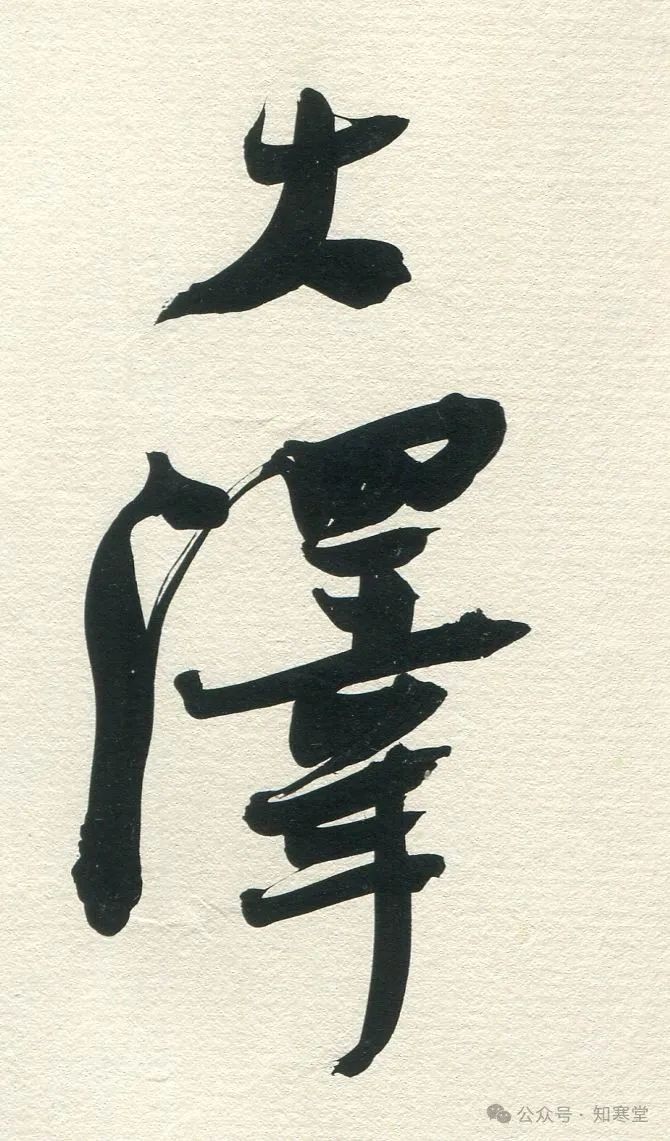 大
澤
公众号·知寒堂